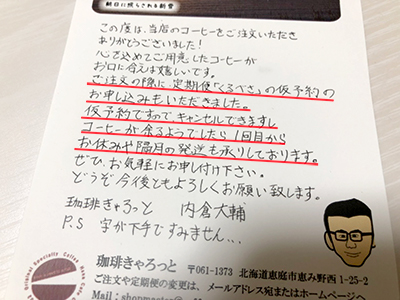 朝日に照らされる新雪
この度は、当店のコーヒーをご注文いただき
ありがとうございました！
心を込めてご用意したコーヒーが
お口に合えば嬉しいです。
ご注文の際に、定期便「くるべさ」の仮予約の
お申し込みもいただきました。
仮予約ですので、キャンセルできますし
コーヒーが余るようでしたら1回目から
お休みや隔月の発送も承りしております。
ぜひ、お気軽にお申し付け下さい。
どうぞ今後ともよろしくお願い致します。
珈琲きゃろっと 内倉大輔
P.S 字が下手ですみません...
珈琲きゃろっと 〒061-1373 北海道恵庭市恵み野西1-25-2
ご注文や定期便の変更は、メールアドレス宛またはホームページへ
Original Specialty Coffee